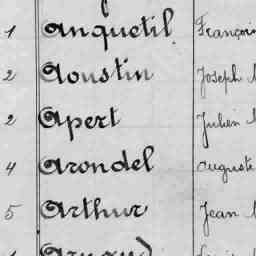 1 Anquetil François
2 Aoustin Joseph
2 Apert Julien
4 Arondel Auguste
5 Arthur Jean